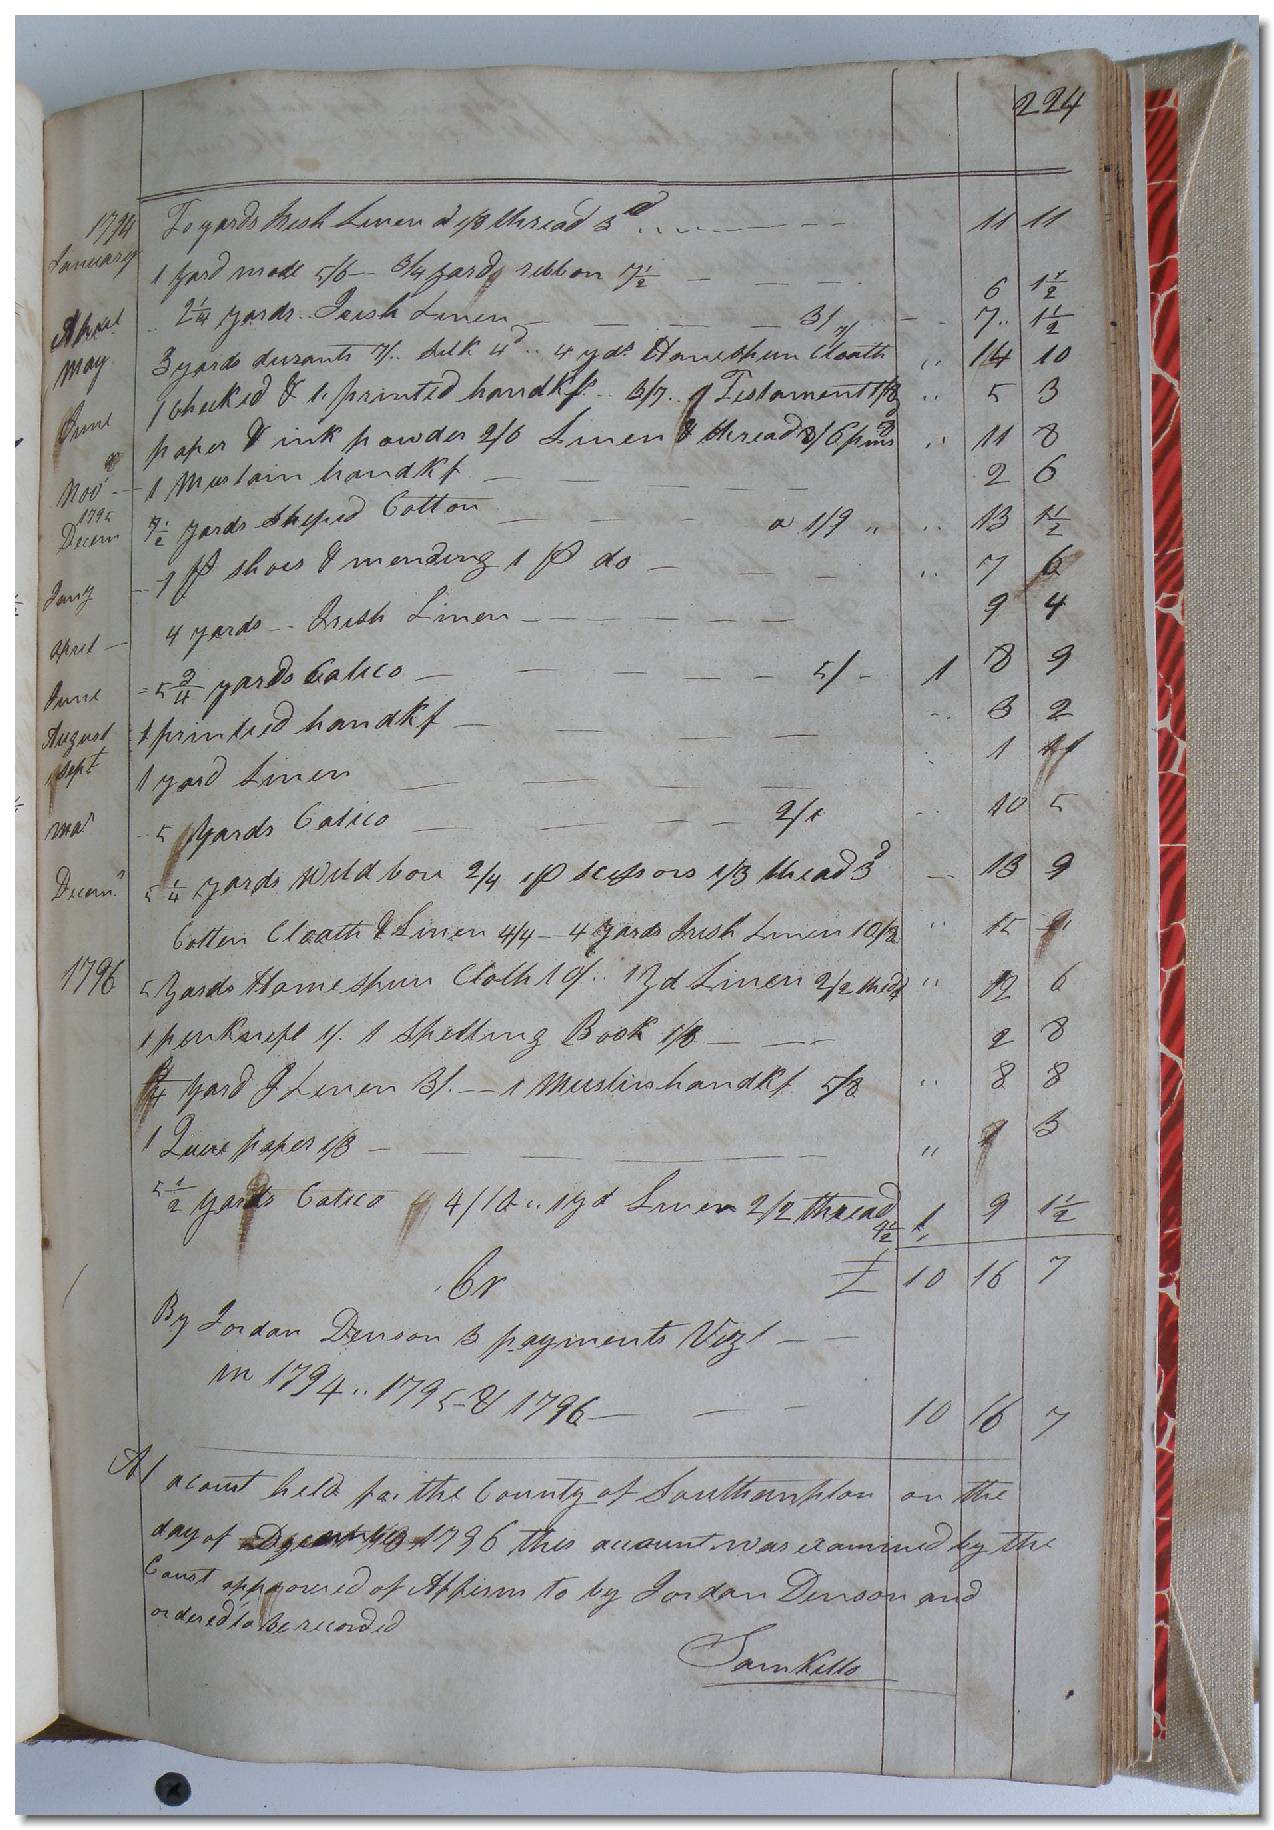 224
1794 To yards Irish Linen a 1/8 thread 3d 11 11
January
1 yard mode 5/6 3/4 yards ribbon 7 1/2 6 1 1/2
April 2 1/4 yards Irish Linen 3/ 7 1 1/2
May 3 yards durants 7/ silk 4d 4 yds Homespun Cloath 7/ 14 10
1 Checked & 1 printed handkf 3/7 1 Testament 1/8 5 3
June paper & ink powder 2/6 Linen & thread 8/6 pins 11 8
Novr 1 Muslain handkf 2 6
1795
Decem 7 1/2 yards Striped Cotton a 1/9 13 1 1/2
Jany 1 p shoes & mending 1 p do 7 6
April 4 yards Irish Linen 9 4
June 5 3/4 yards Calico 5/ 1 8 9
August 1 printed handkf 3 2
Sept 1 yard Linen 1 11
5 yards Calico 2/1 10 5
Decemr 5 1/4 yards Wild bore 2/4 1 p scissors 1/3 thread 3d 13 9
Cotten Cloath & Linen 4/4 4 yards Irish Linen 10/8 15
1796 5 yards Homespun Cloth 10/ 1 yd Linen 2/2 thd 4 12 6
1 penknife 1/ 1 Spelling Book 1/8 2 8
yard I Linen 3/ 1 Muslin handkf 5/8 8 8
1 Quire paper 1/3 1 3
5 1/2 yards Calico 4/10 1 yd Linen 2/2 thread 4 1/2 1 9 1 1/2
Cr £ 10 16 7
By Jordan Denson 3 payments Viz
in 1794 1795 & 1796 10 16 7
At a court held for the County of Southampton on the
day of 1796 this account was examined by the
Court approved of Affirm to by Jordan Denson and
ordered to be recorded
Sam Kello